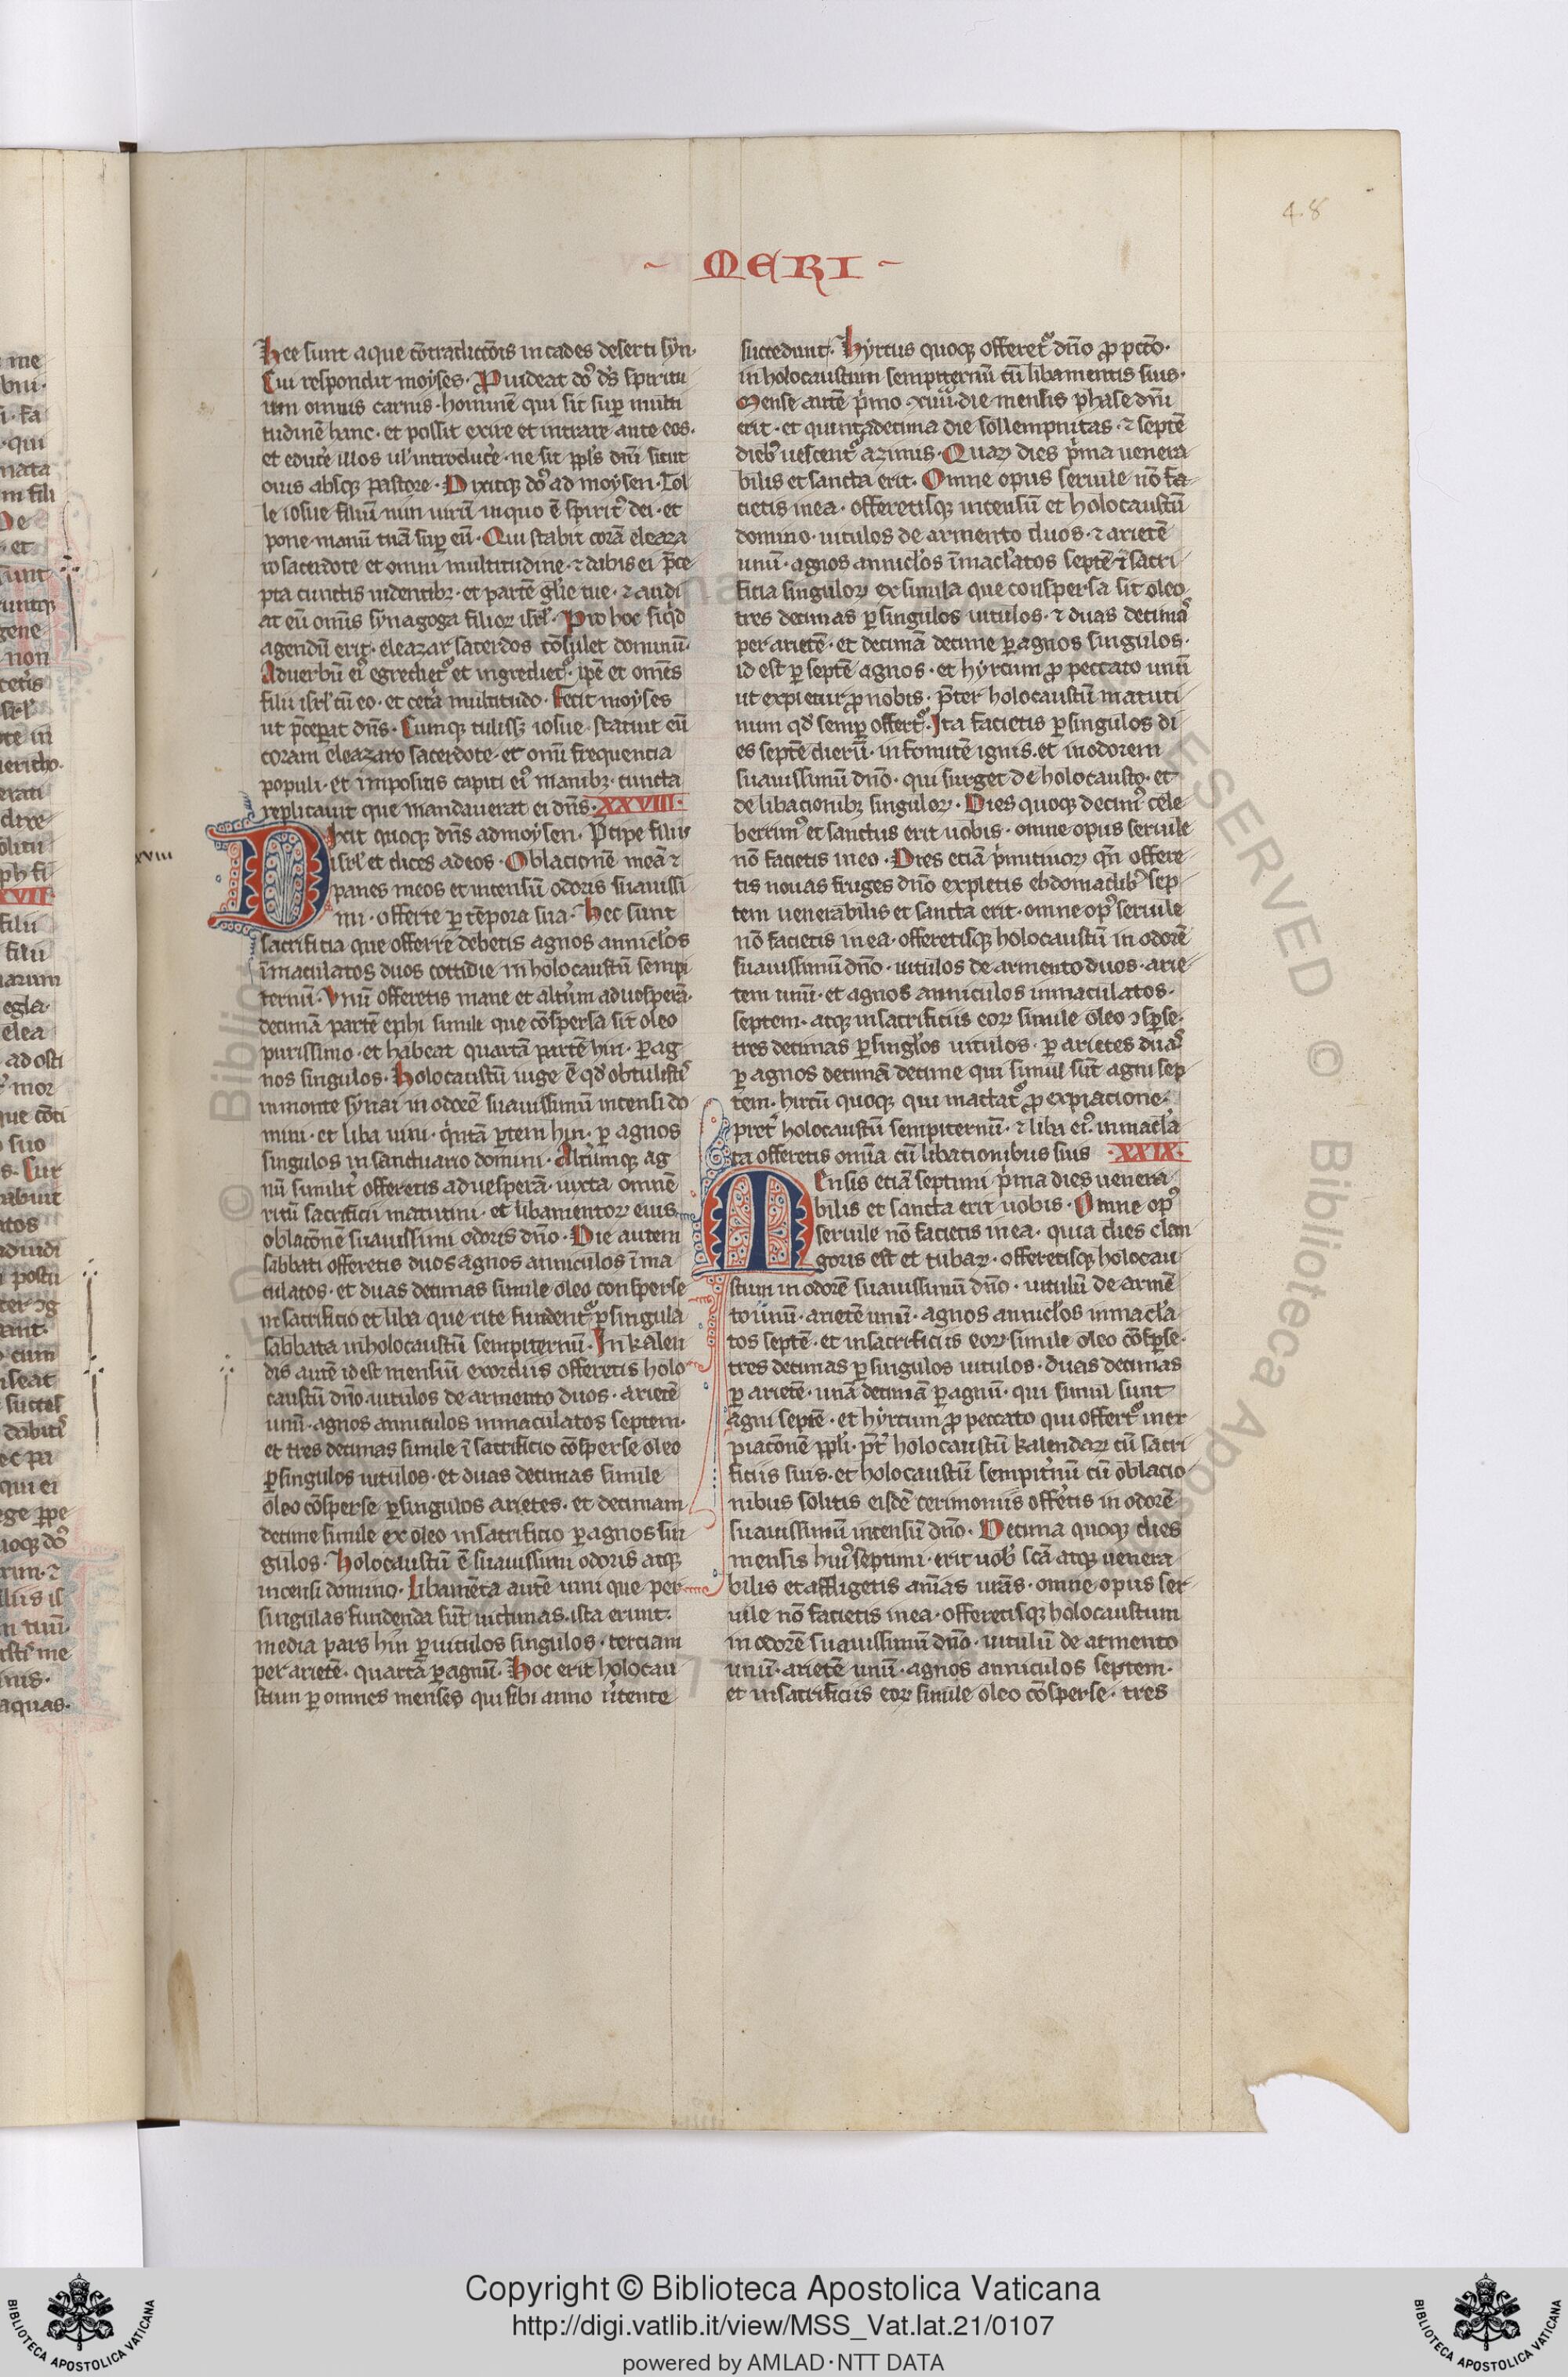 ~ MERI ~
4.8
hee sunt aque cõtradictiõis in cades deserti syn·
Cui respondit moyses· Puideat dõs dš spiritu
um omnis carnis· hominẽ qui sit sup̱ multi
tudinẽ hanc· et possit exire et intrare ante eos·
et educ̓e illos ul̓ introduc̓e· ne sit ppl̓s dñi sicut
ouis absq; pastore· Dixitq; dõs ad moysen· Tol
le iosue filiũ nun uirũ in quo ẽ spirit᷒ dei· et
pone manũ tuã sup̱ eũ· Qui stabit corã eleaza
ro sacerdote et omni multitudine· ⁊ dabis ei p̃ce
pta cunctis uidentibꝫ· et partẽ gl̓ie tue· ⁊ audi
at eũ omĩs synagoga filioꝝ isrl̓· Pro hoc siq̓d
agendũ erit· eleazar sacerdos cõsulet dominũ·
Ad uerbũ ei᷒ egrediet᷑ et ingrediet᷑ ip̃e et omẽs
filii isrl̓ cũ eo· et cet̓a multitudo· Fecit moyses
ut p̃cep̱at dñs· Cumq; tulissꝫ iosue· statuit eũ
coram eleazaro sacerdote· et omĩ frequencia
populi· et impositis capiti ei᷒ manibꝫ· cuncta
replicauit que mandauerat ei dñs· XXVIII·
xviii
Dixit quoq; dñs ad moysen· P̃cipe filiis
isrl̓ et dices ad eos· Oblacionẽ meã ⁊
panes meos et incensũ odoris suauissi
mi· offerte p̱ tẽpora sua· Hec sunt
sacrificia que offerre debetis agnos annicl̓os
ĩmaculatos duos cottidie in holocaustũ sempi
ternũ· Vnũ offeretis mane et alt̓um ad uesperã·
decimã partẽ ephi simile que cõspersa sit oleo
purissimo· et habeat quartã partẽ hin· p̱ ag
nos singulos· Holocaustũ iuge ẽ qd̓ obtulisti᷒
in monte synai in odorẽ suauissimũ incensi do
mini· et liba uini· q̓rtã p̱tem hin· p̱ agnos
singulos in sanctuario domini· Alt̓umq; ag
nũ similit̓ offeretis ad uesperã· iuxta omnẽ
ritũ sacrificii matutini· et libamentoꝝ eius
oblaciõnẽ suauissimi odoris dño· Die autem
sabbati offeretis duos agnos anniculos ĩma
culatos· et duas decimas simile oleo consperse
in sacrificio et liba que rite fundent᷑ p̱ singula
sabbata in holocaustũ sempiternũ· In kalen
dis autẽ id est mensiũ exordiis offeretis holo
caustũ dño· uitulos de armento duos· arietẽ
unũ· agnos anniculos inmaculatos septem·
et tres decimas simile ĩ sacrificio cõsperse oleo
p̱ singulos uitulos· et duas decimas simile
oleo cõsperse p̱ singulos arietes· et decimam
decime simile ex oleo in sacrificio p̱ agnos sin
gulos· Holocaustũ ẽ suauissimi odoris atq;
incensi domino· Libamẽta autẽ uini que per
singulas fundenda sũt uictimas· ista erunt·
media pars hin p̱ uitulos singulos· terciam
per arietẽ· quartã p̱ agnũ· Hoc erit holocau
stum p̱ omnes menses qui sibi anno u̓tente
succedunt· Hyrcus quoq; offeret᷑ dño ꝓ pctõ·
in holocaustum sempiternũ cũ libamentis suis·
Mense autẽ p̓mo xiiii· die mensis phase dñi
erit· et quintadecima die sollempnitas· ⁊ septẽ
dieb᷒ uescent᷑ azimis· Quaꝝ dies p̓ma uenera
bilis et sancta erit· Omne opus seruile nõ fa
cietis in ea· offeretisq; incensũ et holocaustũ
domino· uitulos de armento duos· ⁊ arietẽ
unũ· agnos annicl̓os ĩmacl̓atos septẽ· ⁊ ĩ sacri
ficia singuloꝝ ex simila que conspersa sit oleo
tres decimas p̱ singulos uitulos· ⁊ duas decima᷒
per arietẽ· et decimã decime p̱ agnos singulos·
id est p̱ septẽ agnos· et hyrcum ꝓ peccato unũ
ut expietur ꝓ nobis· p̃ter holocaustũ matuti
num qd̓ semp̱ offert᷑· Ita facietis p̱ singulos di
es septẽ dierũ· in fomitẽ ignis· et in odorem
suauissimũ dño· qui surget de holocausto· et
de libacionibꝫ singuloꝝ· Dies quoq; decim᷒ cele
berrim᷒ et sanctus erit uobis· omne opus seruile
nõ facietis in eo· Dies eciã p̓mitiuoꝝ qñ offere
tis nouas fruges dño expletis ebdomadib᷒ sep
tem uenerabilis et sancta erit· omne op᷒ seruile
nõ facietis in ea· offeretisq; holocaustũ in odorẽ
suauissimũ dño· uitulos de armento duos· arie
tem unũ· et agnos anniculos inmaculatos·
septem· atq; in sacrificiis eoꝝ simile oleo ꝯsp̱se·
tres decimas p̱ singl̓os uitulos· p̱ arietes dua᷒
p̱ agnos decimã decime qui simul sũt agni sep
tem· hircũ quoq; qui mactat᷑ ꝓ expiacione·
pret̓ holocaustũ sempiternũ· ⁊ liba ei᷒· inmacl̓a
ta offeretis om̃ia cũ libationibus suis· XXIX·
Mensis etiã septimi p̓ma dies uenera
bilis et sancta erit uobis· Omne op᷒
seruile nõ facietis in ea· quia dies clan
goris est et tubaꝝ· offeretisq; holocau
stum in odorẽ suauissimũ dño· uitulũ de armẽ
to unũ· arietẽ unũ· agnos annicl̓os inmacl̓a
tos septẽ· et in sacrificiis eoꝝ simile oleo cõsp̱se·
tres decimas p̱ singulos uitulos· duas decimas
p̱ arietẽ· unã decimã p̱ agnũ· qui simul sunt
agni septẽ· et hyrcum ꝓ peccato qui offert᷑ in ex
piaciõnẽ ppl̓i· p̃t̓ holocaustũ kalendaꝝ cũ sacri
ficiis suis· et holocaustũ sempit̓nũ cũ oblacio
nibus solitis eisdẽ cerimoniis offer̓tis in odorẽ
suauissimũ incensũ dño· Decima quoq; dies
mensis hui᷒ septimi· erit uob᷒ sc̃a atq; uenera
bilis et affligetis aĩas ur̃as· omne opus ser
uile nõ facietis in ea· offeretisq; holocaustum
in odorẽ suauissimũ dño· uitulũ de armento
unũ· arietẽ unũ· agnos anniculos septem·
et in sacrificiis eoꝝ simile oleo cõsperse· tres
Copyright © Biblioteca Apostolica Vaticana
http://digi.vatlib.it/view/MSS_Vat.lat.21/0107
powered by AMLAD·NTT DATA
BIBLIOTECA APOSTOLICA VATICANA
BIBLIOTECA APOSTOLICA VATICANA